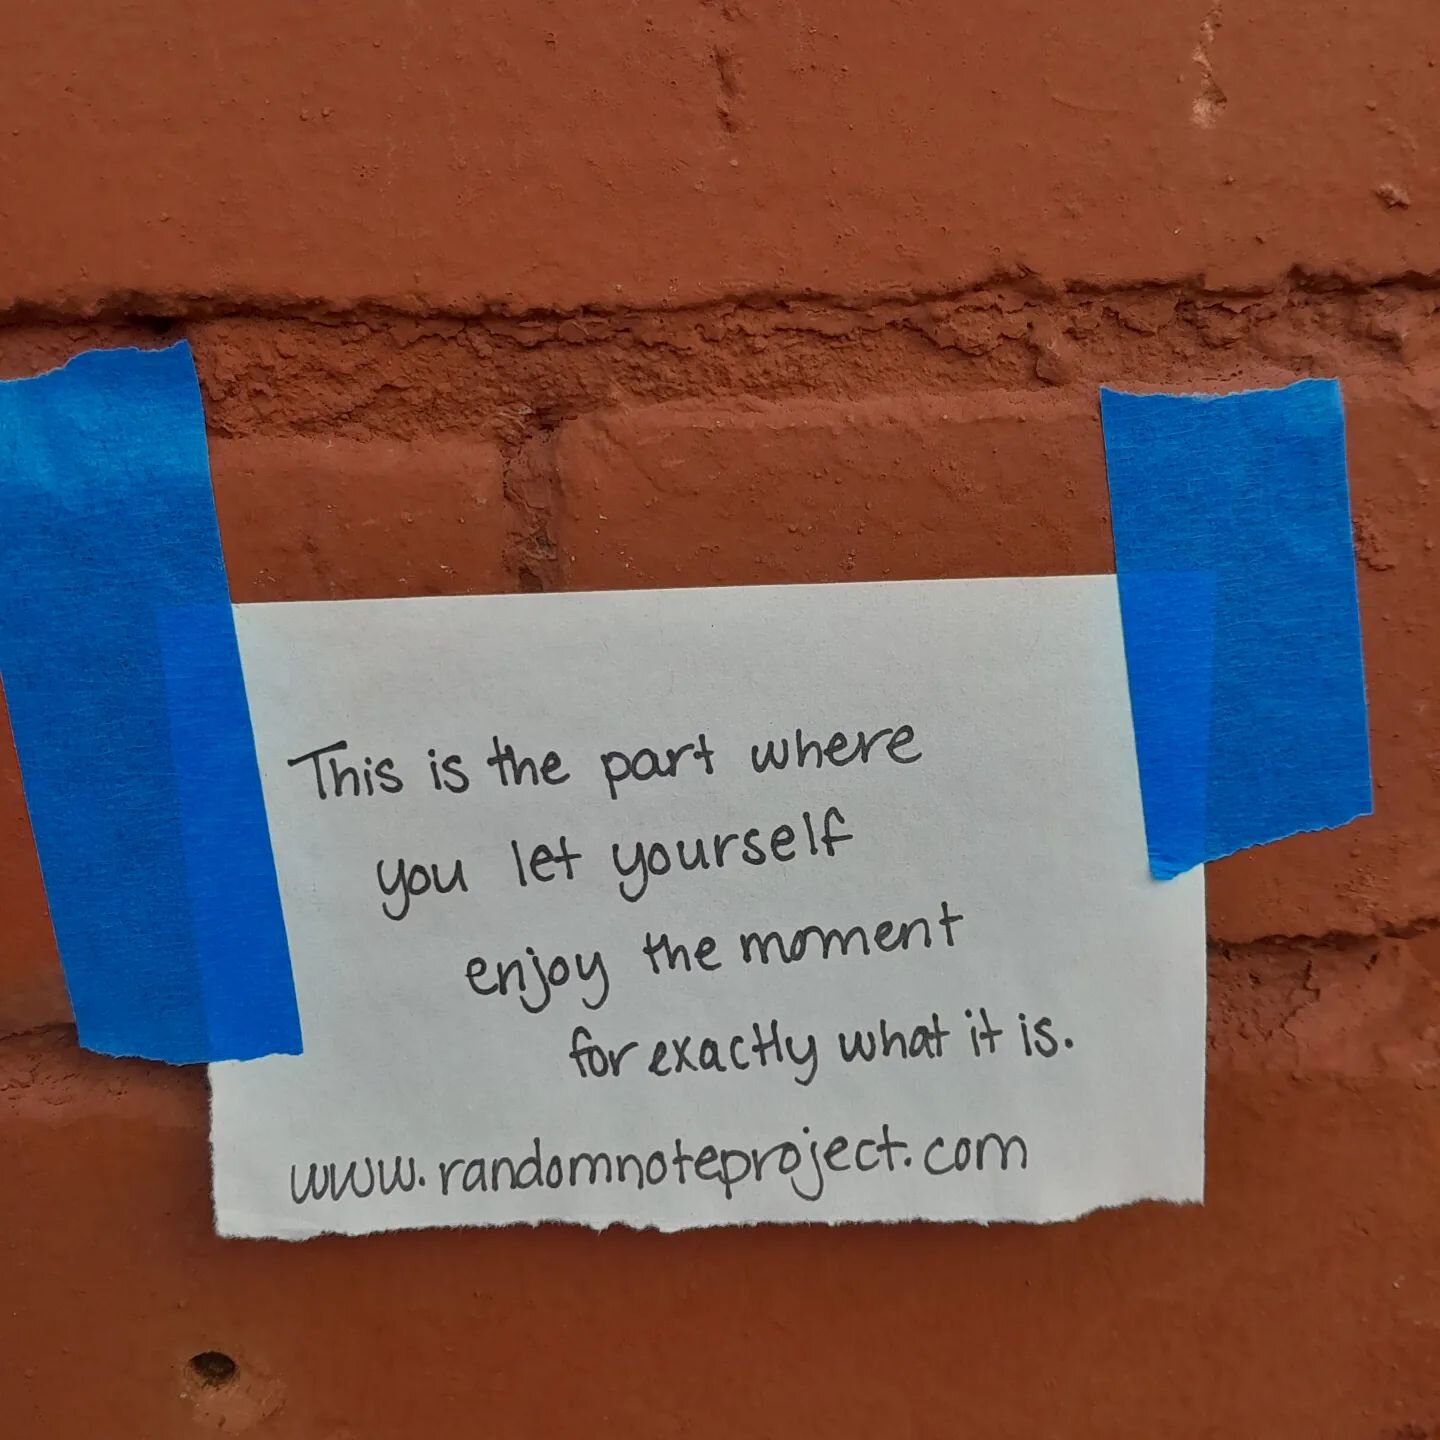 This is the part where
you let yourself
enjoy the moment
for exactly what it is.
www.randomnoteproject.com